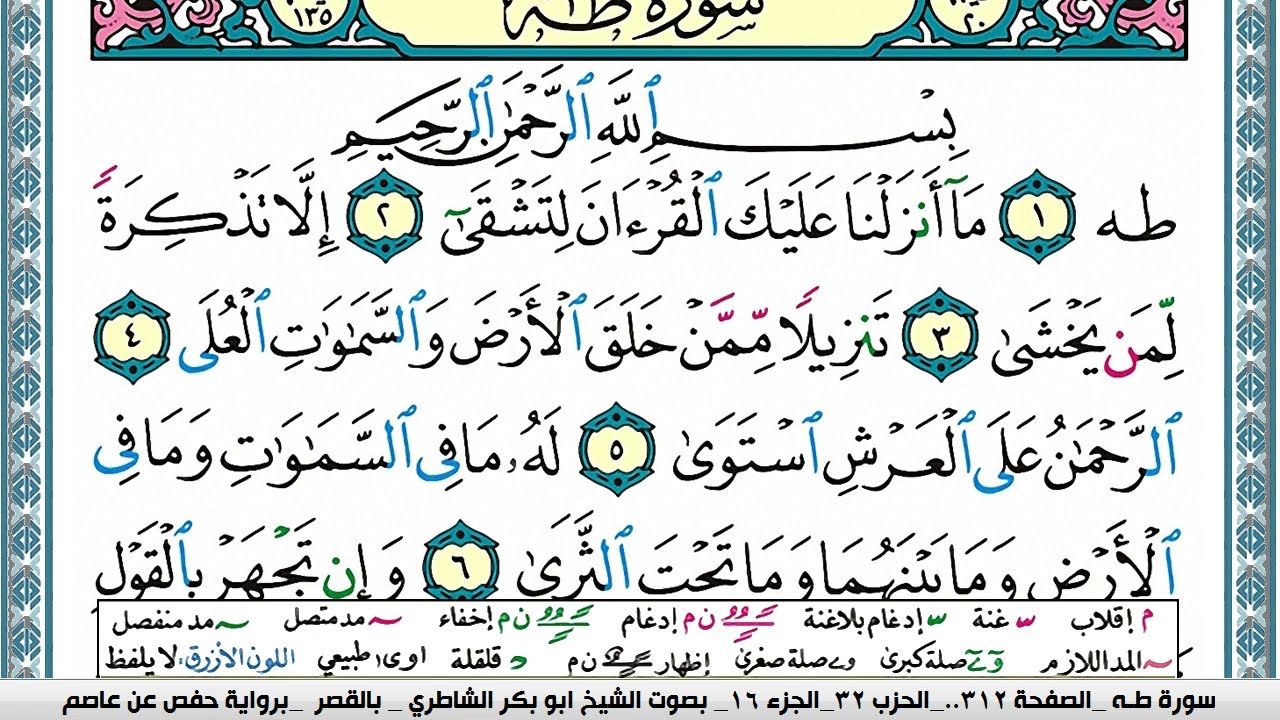 ١٣٥ سورة طه ٢٠
بِسْمِ ٱللَّهِ ٱلرَّحْمَٰنِ ٱلرَّحِيمِ
طه ١ مَآ أَنزَلْنَا عَلَيْكَ ٱلْقُرْءَانَ لِتَشْقَىٰٓ ٢ إِلَّا تَذْكِرَةً
لِّمَن يَخْشَىٰ ٣ تَنزِيلًا مِّمَّنْ خَلَقَ ٱلْأَرْضَ وَٱلسَّمَٰوَٰتِ ٱلْعُلَى ٤
ٱلرَّحْمَٰنُ عَلَى ٱلْعَرْشِ ٱسْتَوَىٰ ٥ لَهُۥ مَا فِى ٱلسَّمَٰوَٰتِ وَمَا فِى
ٱلْأَرْضِ وَمَا بَيْنَهُمَا وَمَا تَحْتَ ٱلثَّرَىٰ ٦ وَإِن تَجْهَرْ بِٱلْقَوْلِ
م إقلاب غنة إدغام بلاغنة ن م إدغام ن م إخفاء مد متصل مد منفصل
المد اللازم صلة كبرى صلة صغرى إظهار ن م قلقلة اوى طبيعي اللون الأزرق: لا يلفظ
سورة طه _الصفحة ٣١٢.._الحزب ٣٢_الجزء ١٦_ بصوت الشيخ ابو بكر الشاطري _ بالقصر _برواية حفص عن عاصم